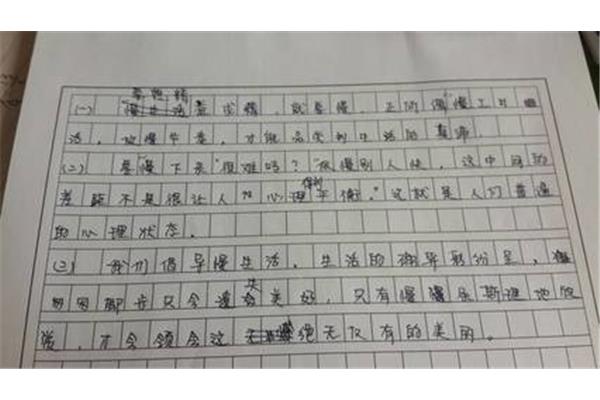 (一) 要想精，就要慢，正所谓慢工出细
活，放慢节奏，才能品尝到生活的真谛。
(二) 要慢下来"很难吗？"我慢别人快，这中间的
差距不是很让人心理得到平衡。"这就是人们普遍
的心理状态。
(三) 我们倡导慢生活，生活的精彩纷呈，
匆匆脚步只会遗失美好，只有慢慢
，才会领会这绝无仅有的美丽。